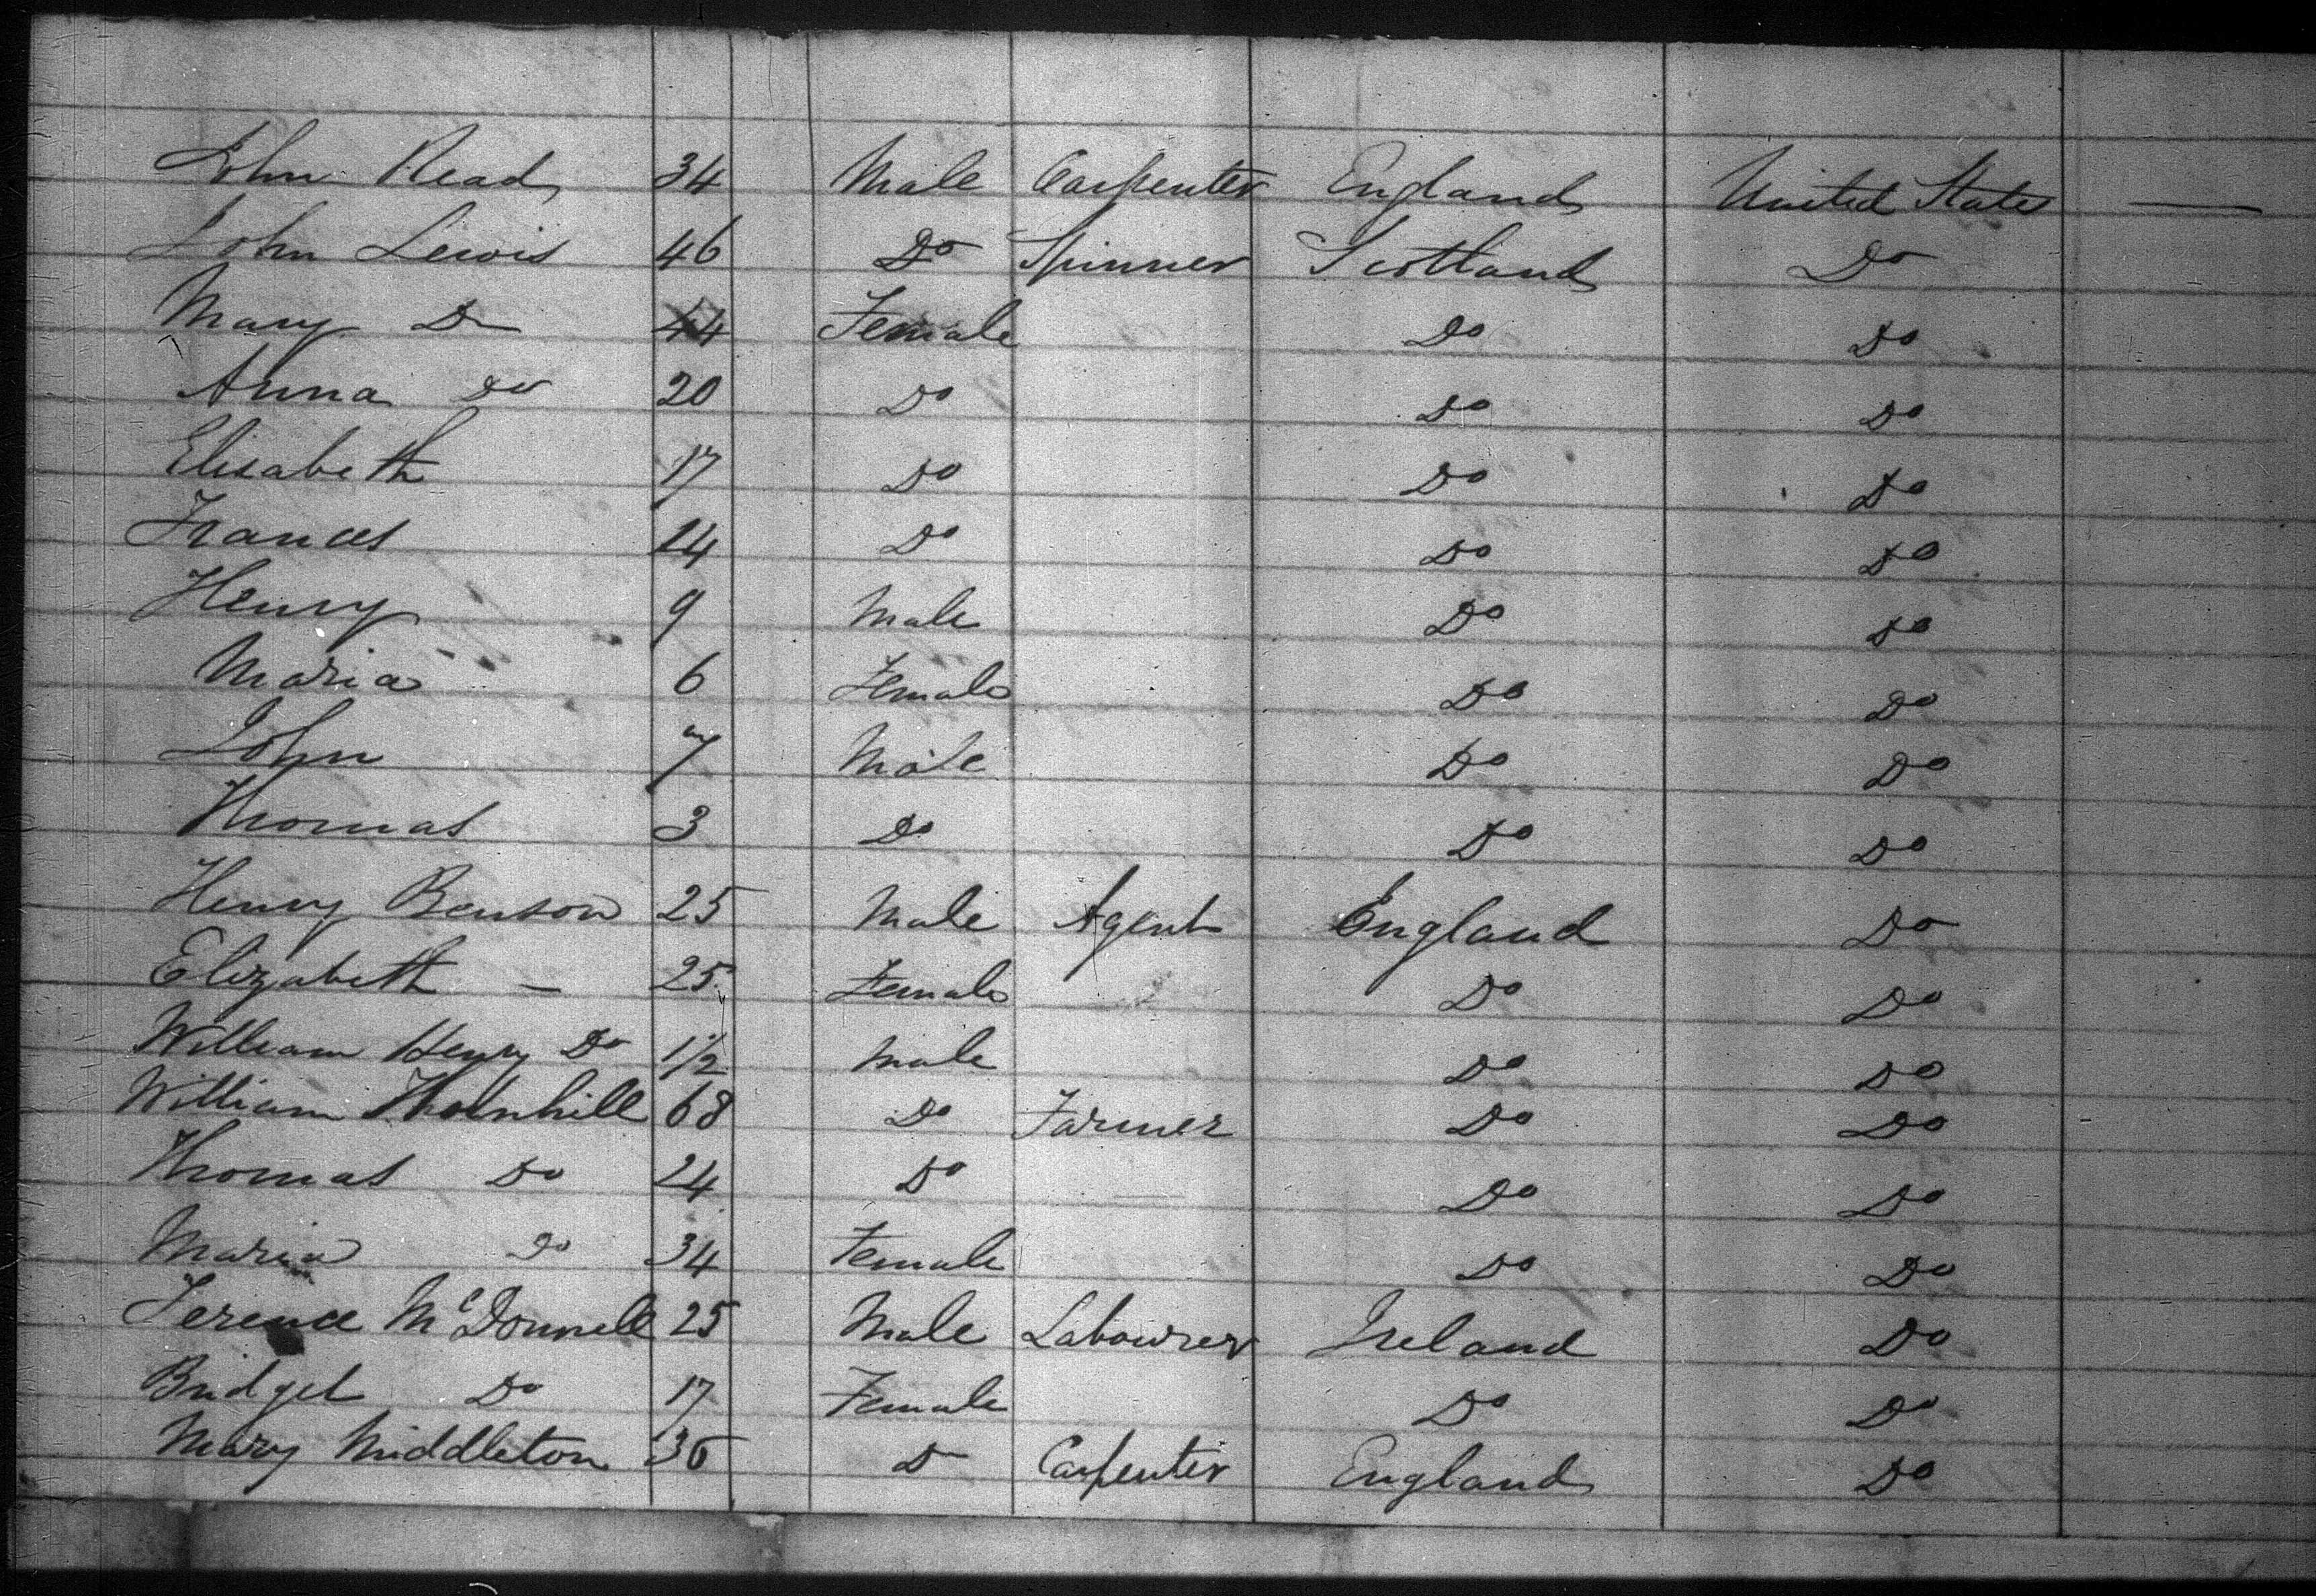 John Read 34 Male Carpenter England United States —
John Lewis 46 Do Spinner Scotland Do
Mary Do 44 Female Do Do
Anna Do 20 Do Do Do
Elisabeth 17 Do Do Do
Frances 14 Do Do Do
Henry 9 Male Do Do
Maria 6 Female Do Do
John 7 Male Do Do
Thomas 3 Do Do Do
Henry Benson 25 Male Agent England Do
Elizabeth — 25 Female Do Do
William Henry Do 1 1/2 Male Do Do
William Thornhill 68 Do Farmer Do Do
Thomas Do 24 Do Do Do
Maria Do 34 Female Do Do
Terence McDonnell 25 Male Labourer Ireland Do
Bridget Do 17 Female Do Do
Mary Middleton Do Carpenter England Do